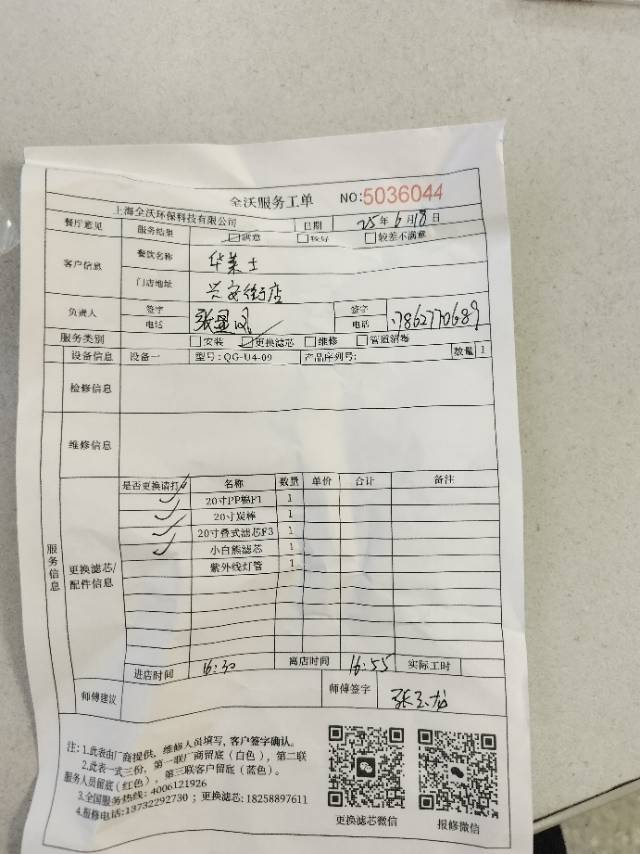 全沃服务工单 NO:5036044
上海全沃环保科技有限公司 日期 25年6月18日
餐厅意见 服务结果 满意 较好 较差不满意
客户信息 餐饮名称 华莱士
门店地址 兴安街店
负责人 签字 签字
电话 电话
服务类别 安装 更换滤芯 维修 管道清洗
设备信息 设备一 型号:QG-U4-09 产品序列号: 数量 1
检修信息
维修信息
服务信息
更换滤芯/配件信息
是否更换请打✓ 名称 数量 单价 合计 备注
✓ 20寸PP棉F1 1
✓ 20寸炭棒 1
✓ 20寸叠式滤芯F3 1
✓ 小白熊滤芯 1
紫外线灯管 1
进店时间 16:30 离店时间 16:55 实际工时
师傅建议 师傅签字
注:1.此表由厂商提供,维修人员填写,客户签字确认。
2.此表一式三份,第一联厂商留底(白色),第二联
服务人员留底(红色),第三联客户留底(蓝色)。
3.全国服务热线:4006121926
4.报修电话:13732292730;更换滤芯:18258897611
更换滤芯微信 报修微信